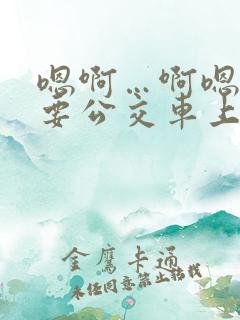 嗯啊…啊嗯
要公交车上
金鹰卡通
未经同意禁止转载